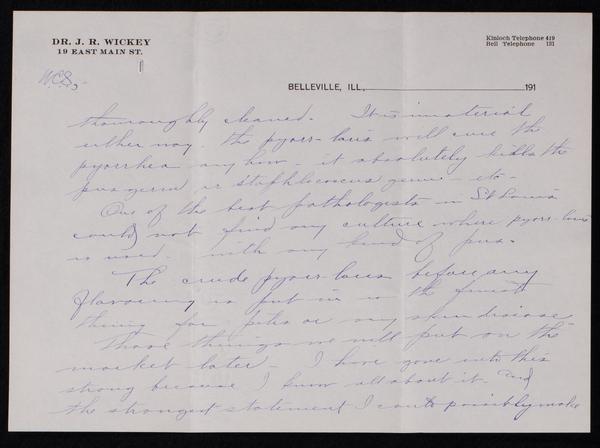 DR. J. R. WICKEY
19 EAST MAIN ST.
Kinloch Telephone 419
Bell Telephone 131
W.C.S.
BELLEVILLE, ILL., 191
thouroughly cleaned. It is imaterial
either way. the pyorr-lavis will cure the
pyorrhea anyhow - it absolutely kills the
pus germ or staphlococcus germ - etc -
One of the best pathologists in St Louis
could not find any culture where pyorr-lavis
is used. with any kind of pus.
The crude pyorr lavis before any
flavoring is put in is the finest
thing for piles or any skin disease
Those things we will put on the
market later - I have gone into this
strong because I know all about it. and
the strongest statement I can possibly make